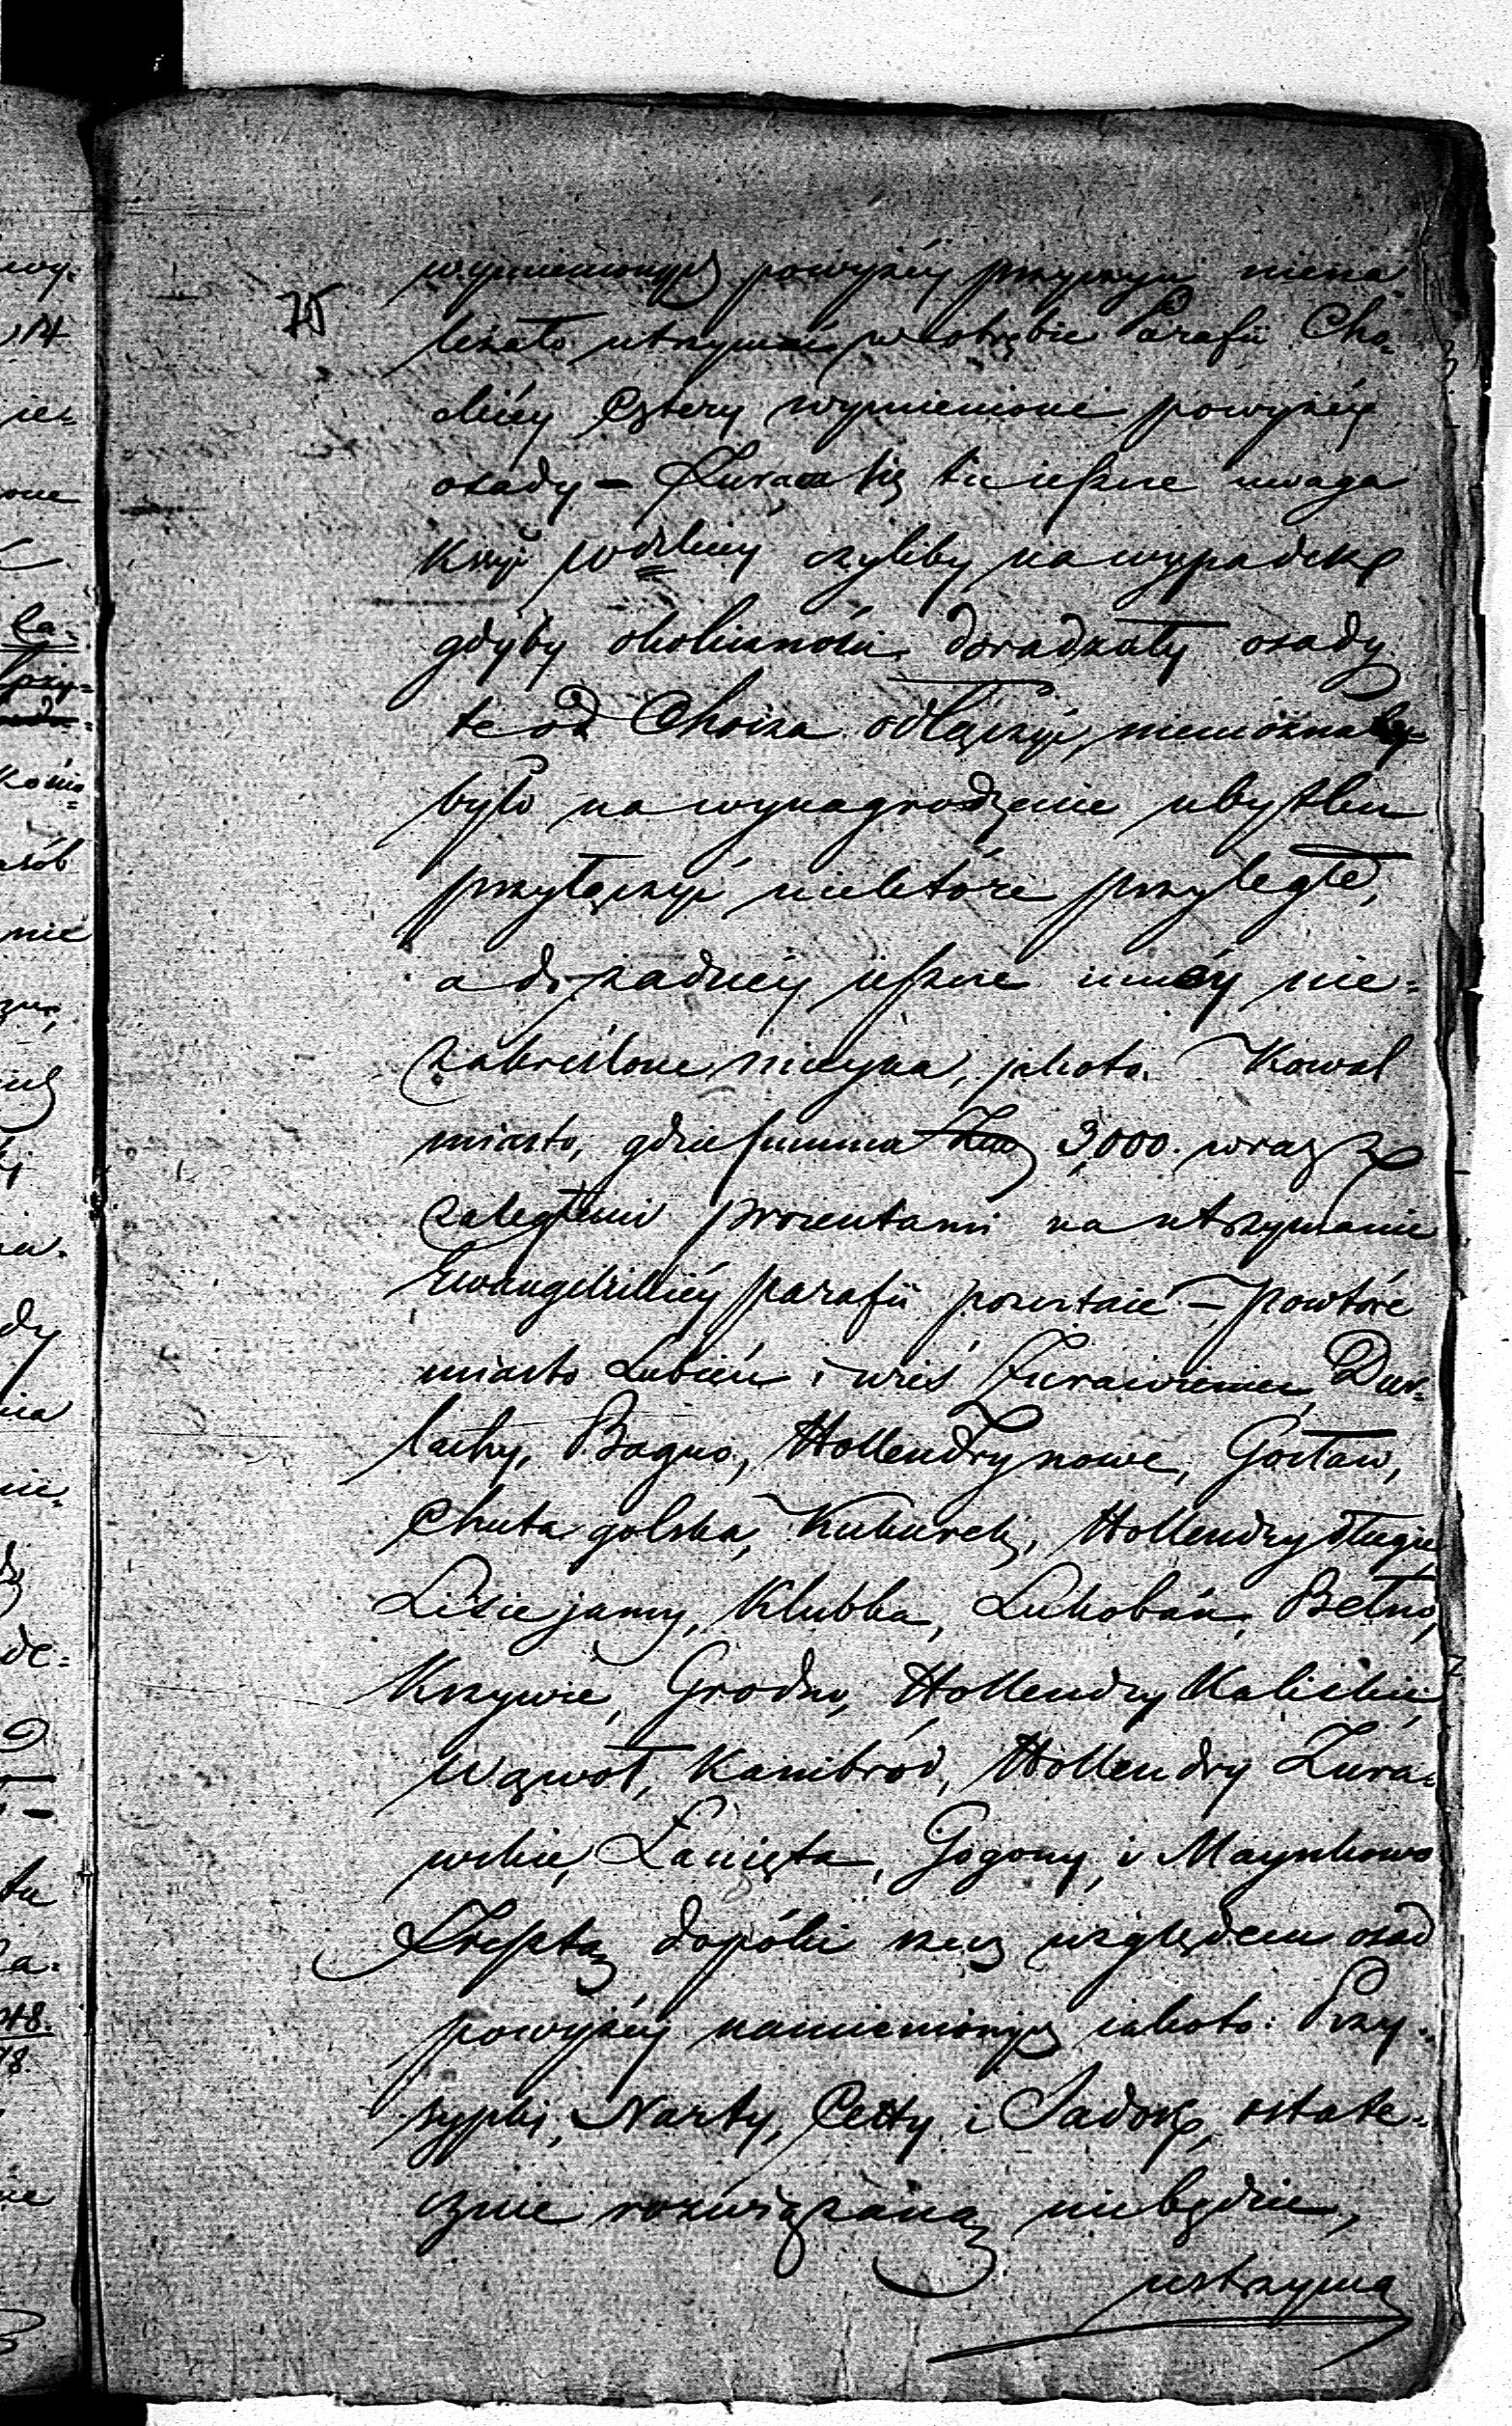 75
wymienionych powyżéy przyczyn niena=
leżało utrzymać w obrębie Parafii Cho=
déczy cztery wymienione powyżéy
osady – Zwraca się tu ieszcze uwaga
Kssji czyliby na wypadek
gdyby okoliczności doradzały osady
te od Chodcza odłączyć, niemożnaby
było na wynagrodzenie ubytku
przyłączyć niektóre przyległe,
a do żadnéy ieszcze innéy nie=
zakreślone mieysca, jakoto. Kowal
miasto, gdzie summa 3,000. wraz z
zaległemi procentami na utrzymanie
Ewangelickiéy parafii pozostaie – powtóre
miasto Lubień i wieś Żurawieniec, Dur=
lachy, Bagno, Hollendry nowe, Gocław,
Chuta golska, Kukurek, Hollendry długie,
Lisie jamy, Klubka, Lutobór, Bełno,
Krzywie, Grodno, Hollendry Kaliskie,
Wąwoł, Kamibród, Hollendry Żura=
wskie, Łanięta, Gogony, i Maynkowo
Zresztą dopóki rzecz względem osad
powyżéy namienionych iakoto: Przy=
sypki, Narty, Cetty i Sadok, ostate=
cznie rozwiązaną niebędzie,
wstrzyma